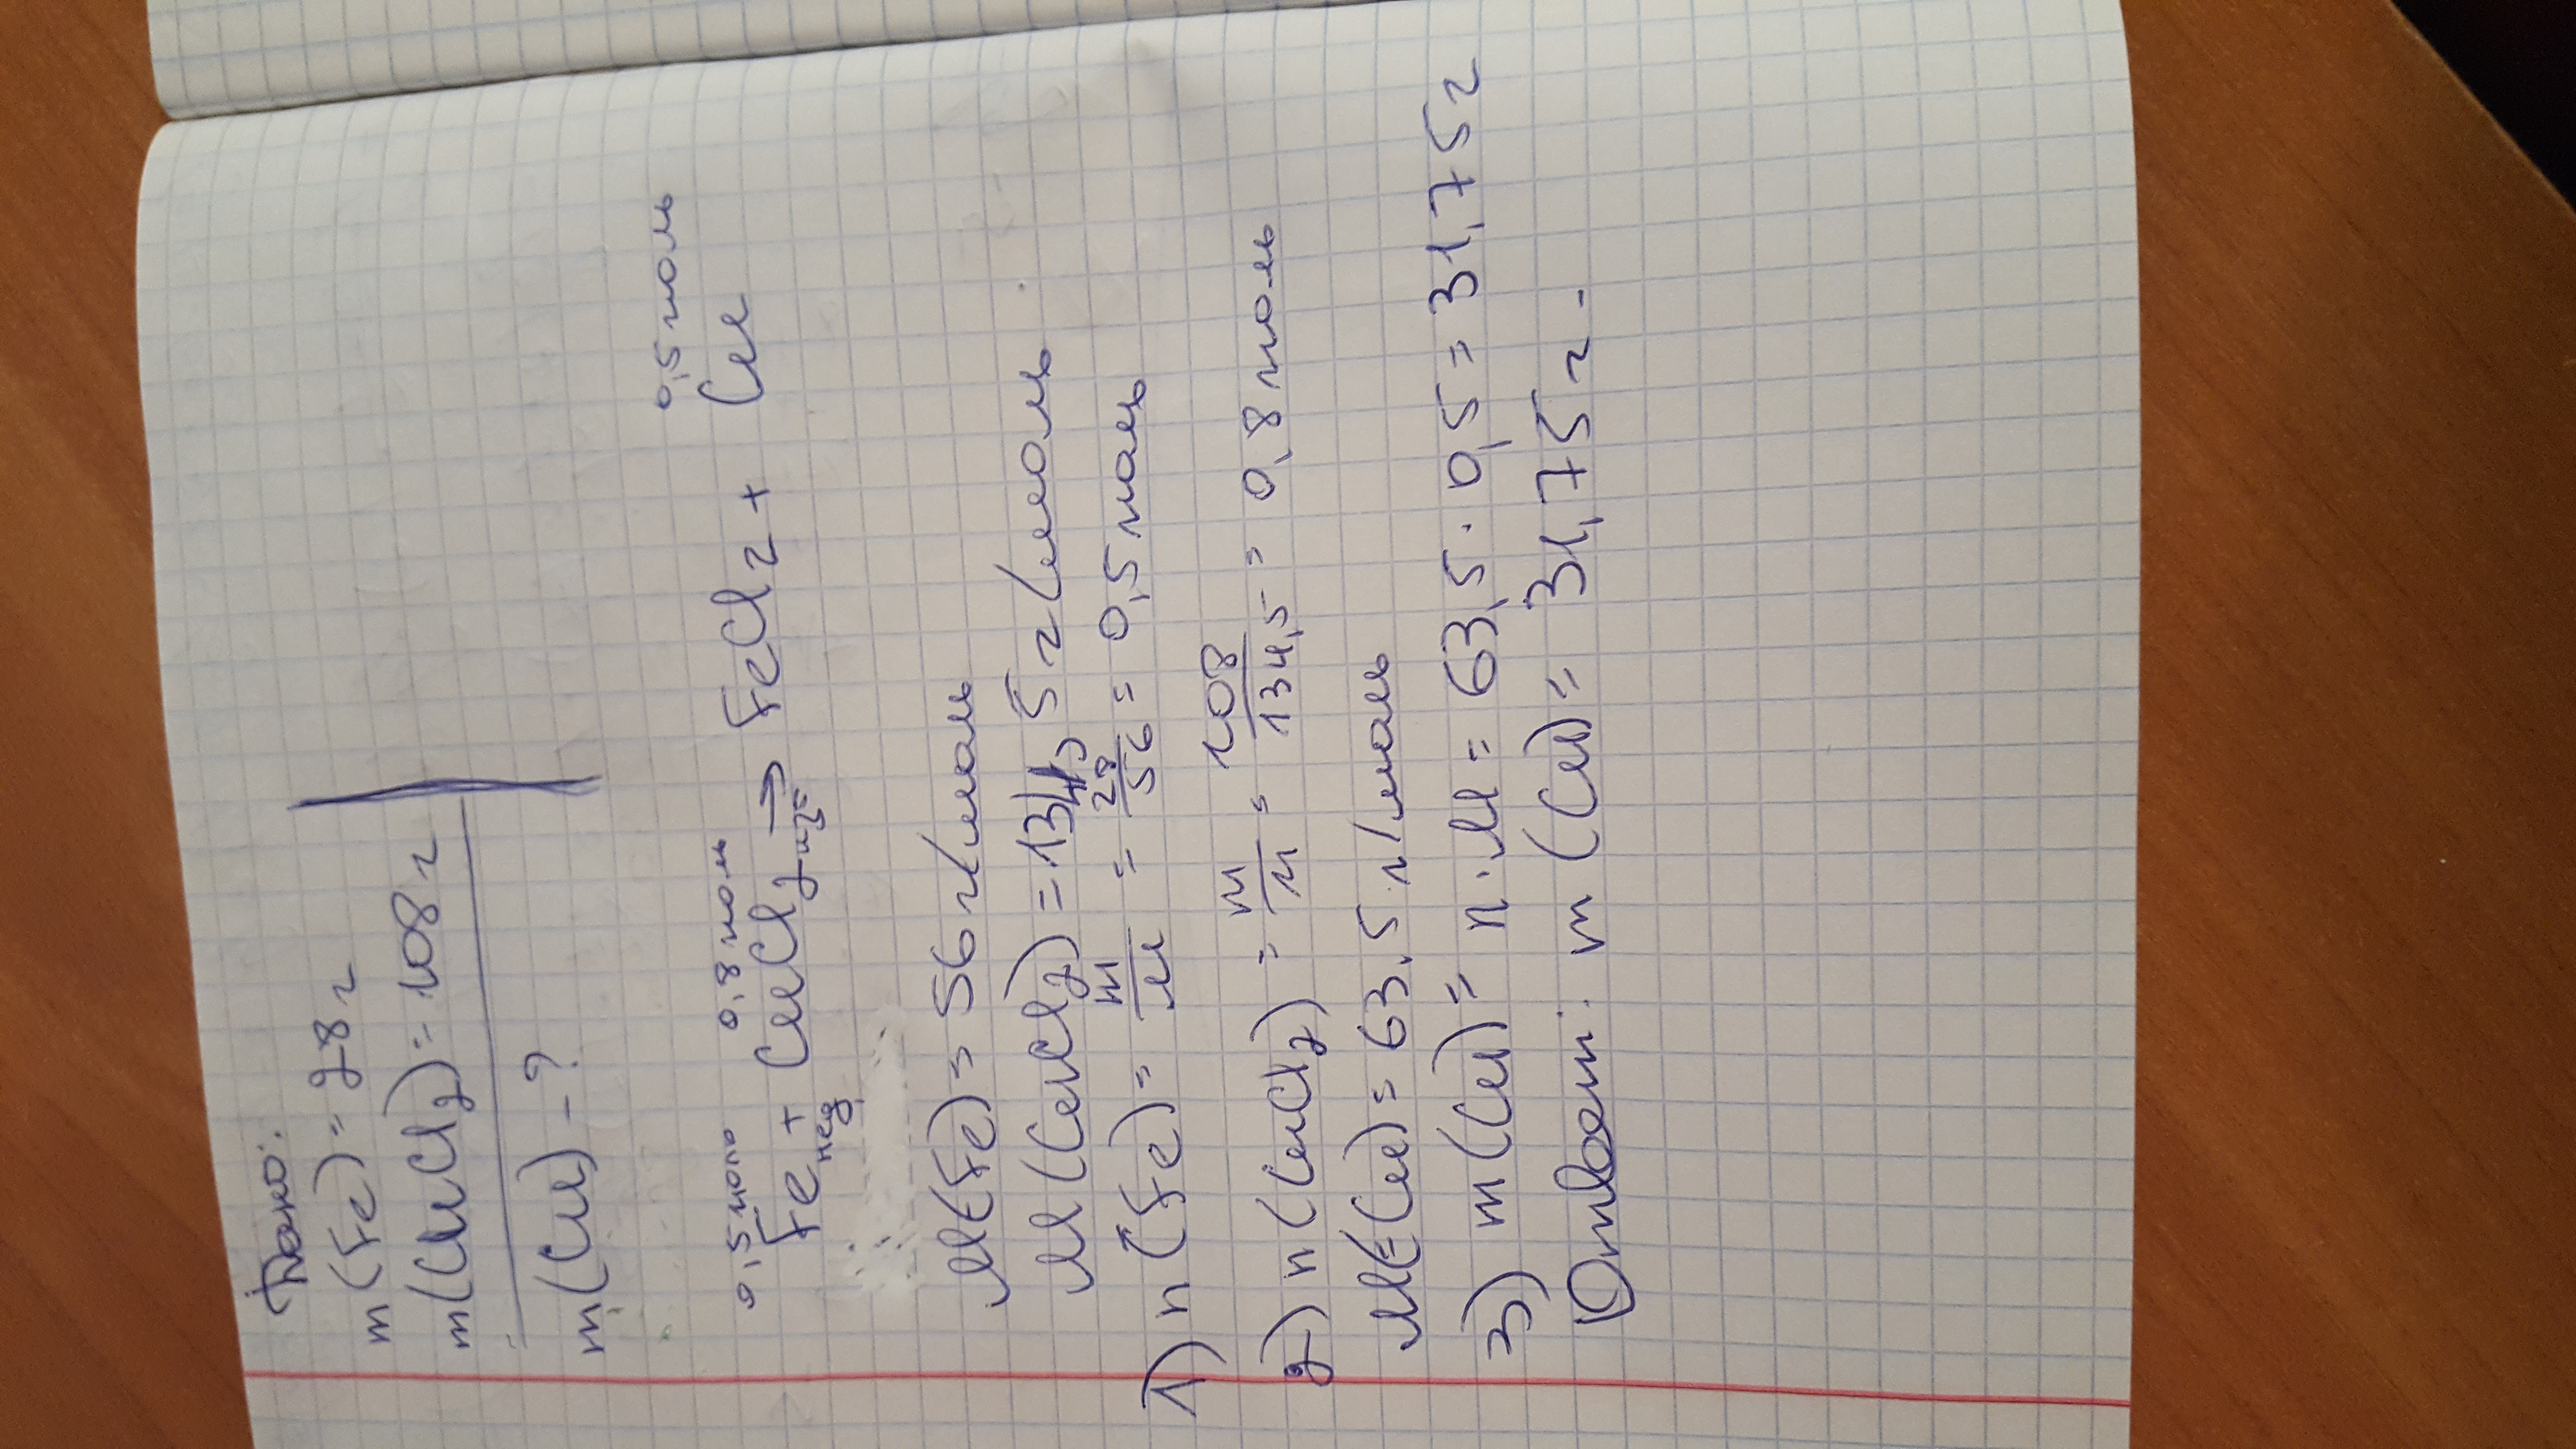 Дано:
m(Fe) = 28 г
m(CuCl2) = 108 г
m(Cu) - ?
0,5 моль 0,8 моль 0,5 моль
Fe + CuCl2 → FeCl2 + Cu
нед. изб
M(Fe) = 56 г/моль
M(CuCl2) = 134,5 г/моль
1) n(Fe) = m/M = 28/56 = 0,5 моль
2) n(CuCl2) = m/M = 108/134,5 = 0,8 моль
M(Cu) = 63,5 г/моль
3) m(Cu) = n · M = 63,5 · 0,5 = 31,75 г
Ответ: m(Cu) = 31,75 г.